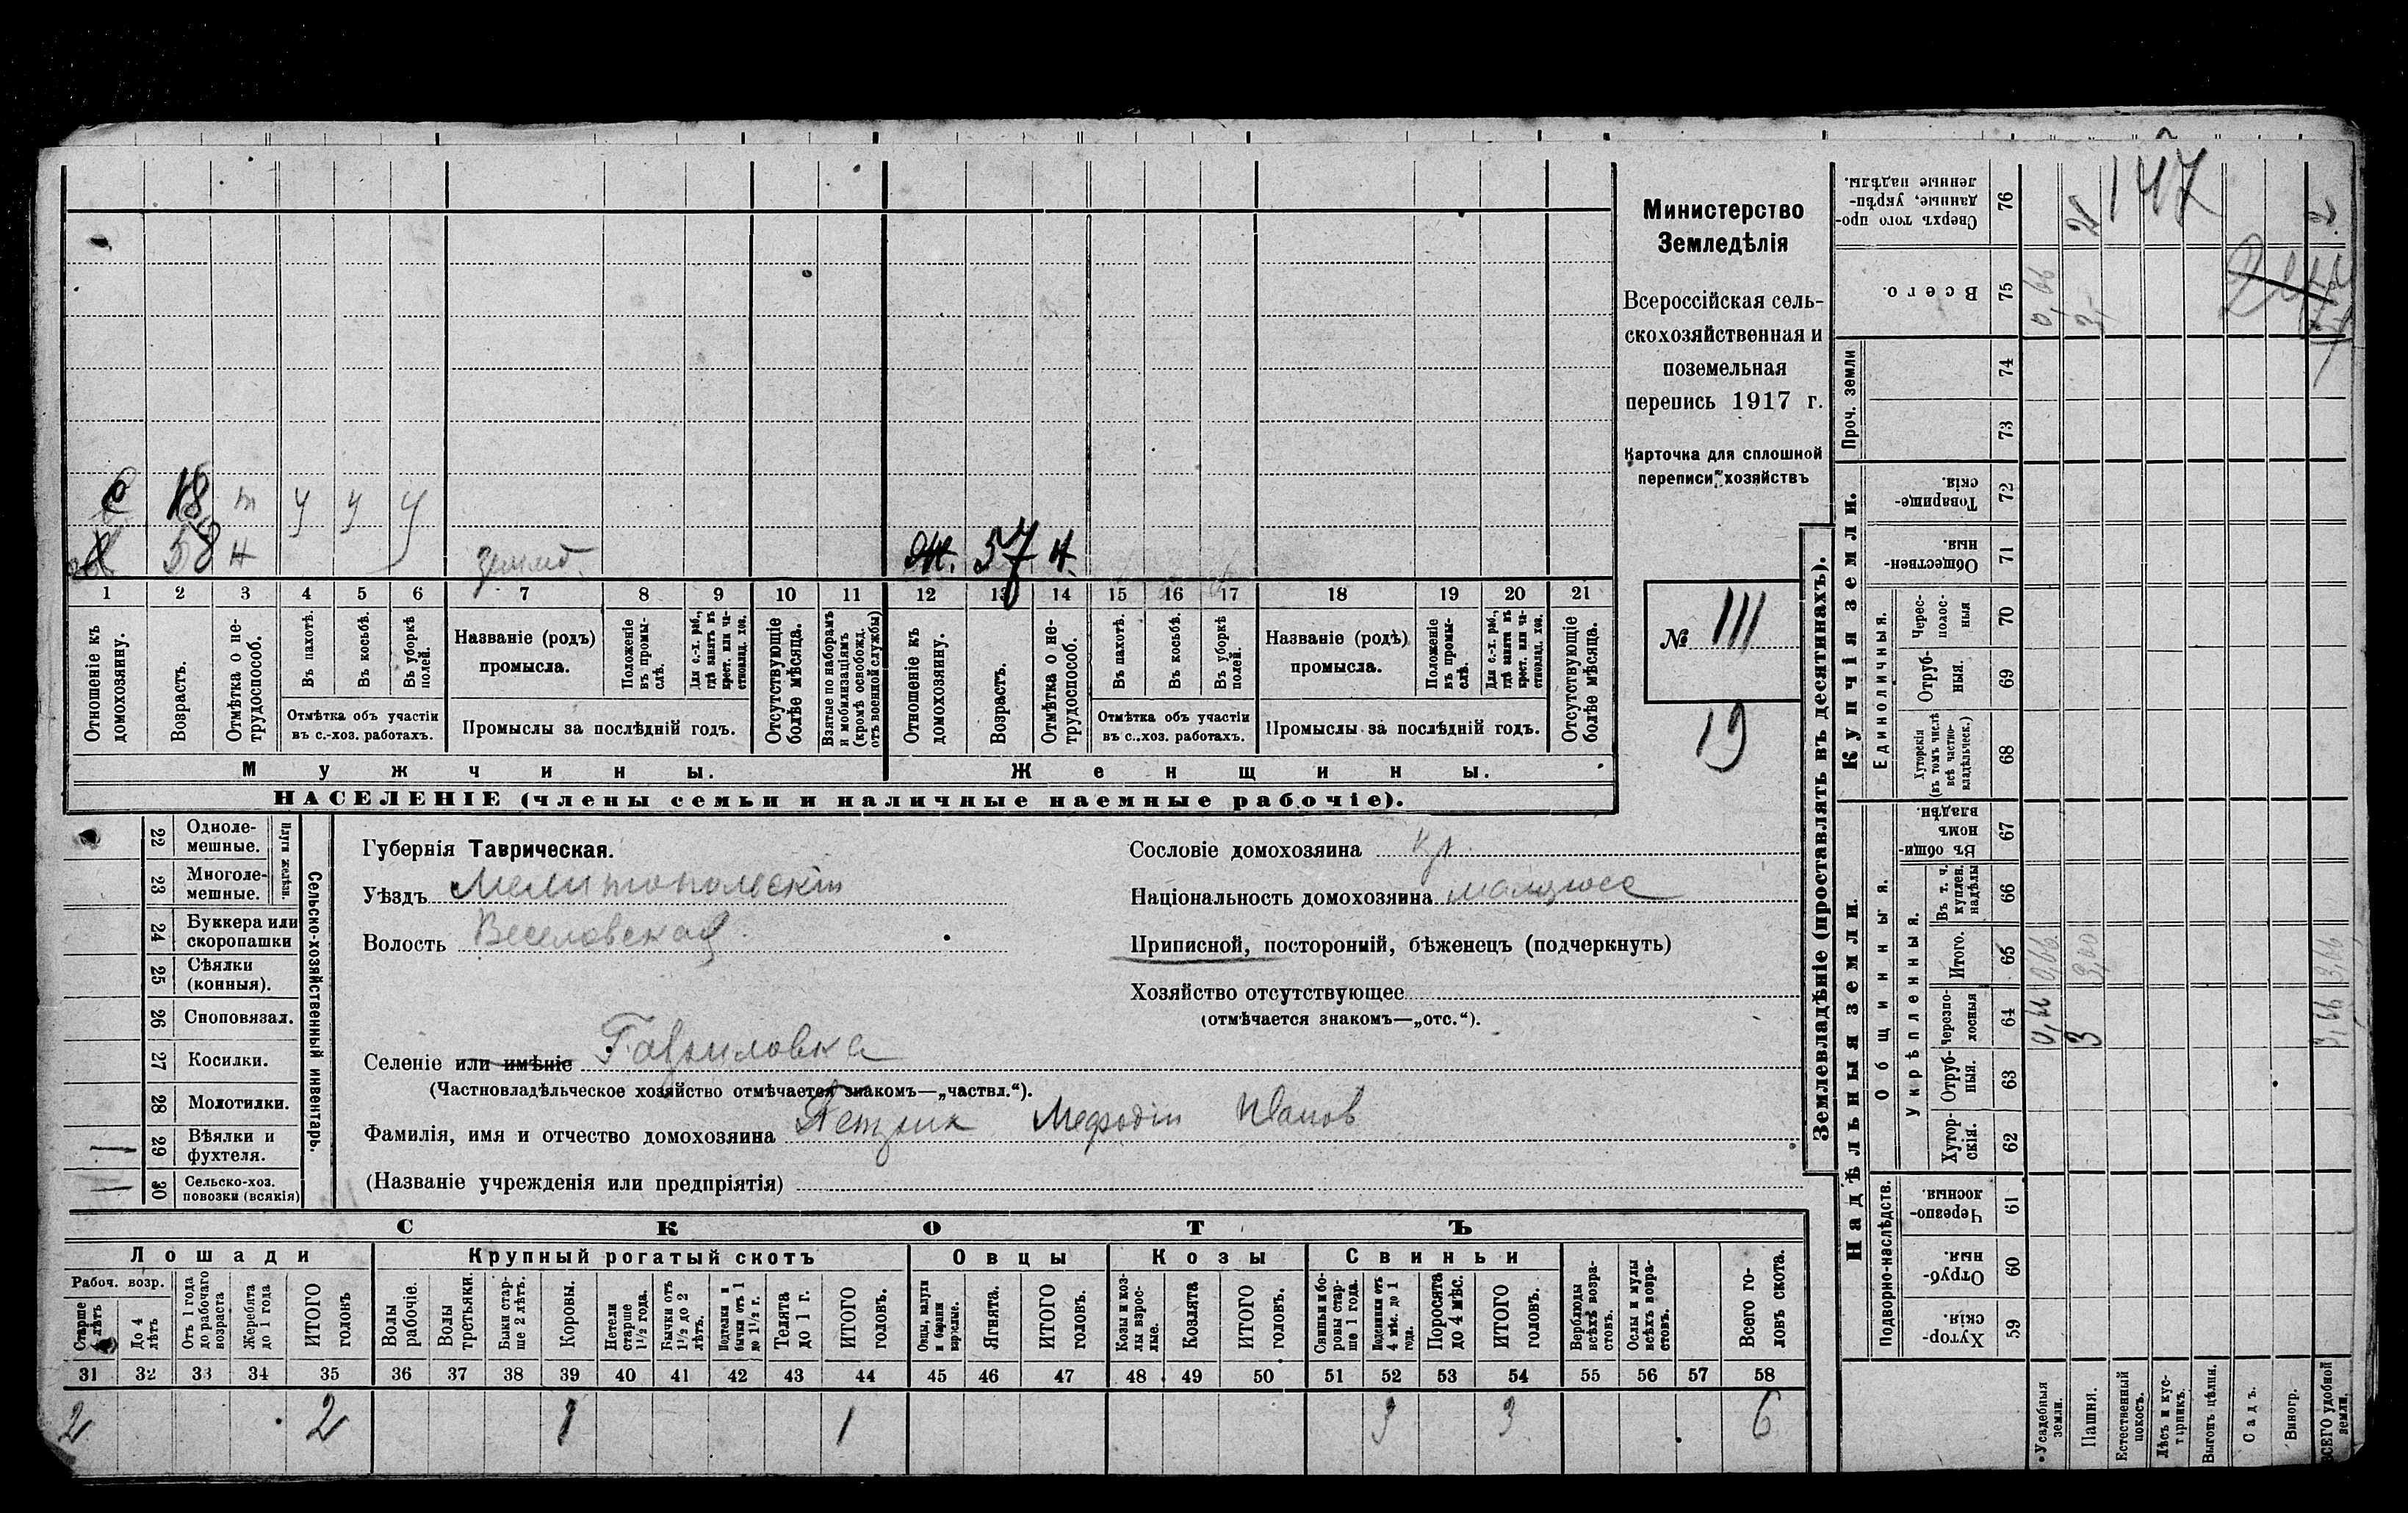 147
С 18 т у у у
58 н землед. Ж. 57 н.
1 2 3 4 5 6 7 8 9 10 11 12 13 14 15 16 17 18 19 20 21
Отношеніе къ домохозяину.
Возрастъ.
Отмѣтка о не-трудоспособ.
Въ пахотѣ.
Въ косьбѣ.
Въ уборкѣ полей.
Отмѣтка объ участіи
въ с.-хоз. работахъ.
Названіе (родъ)
промысла.
Положеніе въ промы-слѣ.
Для с.-х. раб., гдѣ занятъ въ крест. или ча-стновлад. хоз.
Промыслы за послѣдній годъ.
Отсутствующіе болѣе мѣсяца.
Взятые по наборамъ и мобилизаціямъ (кромѣ освобожд. отъ военной службы)
Отношеніе къ домохозяину.
Возрастъ.
Отмѣтка о не-трудоспособ.
Въ пахотѣ.
Въ косьбѣ.
Въ уборкѣ полей.
Отмѣтка объ участіи
въ с.-хоз. работахъ.
Названіе (родъ)
промысла.
Положеніе въ промы-слѣ.
Для с.-х. раб., гдѣ занята въ крест. или ча-стновлад. хоз.
Промыслы за послѣдній годъ.
Отсутствующіе болѣе мѣсяца.
Мужчины. Женщины.
НАСЕЛЕНІЕ (члены семьи и наличные наемные рабочіе).
Министерство
Земледѣлія
Всероссійская сель-
скохозяйственная и
поземельная
перепись 1917 г.
Карточка для сплошной
переписи хозяйствъ
№ 111
19
Сельско-хозяйственный инвентарь.
Плуги желѣзн.
22 Одноле-мешные.
23 Многоле-мешные.
24 Буккера или скоропашки
25 Сѣялки (конныя).
26 Сноповязал.
27 Косилки.
28 Молотилки.
29 Вѣялки и фухтеля.
30 Сельско-хоз. повозки (всякія)
Губернія Таврическая.
Уѣздъ Мелитопольскій
Волость Веселовская
Селеніе или имѣніе Гавриловка
(Частновладѣльческое хозяйство отмѣчается знакомъ—„частвл.“).
Фамилія, имя и отчество домохозяина Петрик Мефодій Иванов
(Названіе учрежденія или предпріятія)
Сословіе домохозяина кр.
Національность домохозяина малоросс
Приписной, посторонній, бѣженецъ (подчеркнуть)
Хозяйство отсутствующее
(отмѣчается знакомъ—„отс.“).
СКОТЪ
Лошади Крупный рогатый скотъ Овцы Козы Свиньи
Рабоч. возр.
Старше 4 лѣтъ
До 4 лѣтъ
Отъ 1 года до рабочаго возраста
Жеребята до 1 года
ИТОГО головъ
Волы рабочіе.
Волы третьяки.
Быки стар-ше 2 лѣтъ.
Коровы.
Нетели старше 1½ года.
Бычки отъ 1½ до 2 лѣтъ.
Подтелки и бычки отъ 1 до 1½ г.
Телята до 1 г.
ИТОГО головъ.
Овцы, валухи и бараны взрослые.
Ягнята.
ИТОГО головъ.
Козы и коз-лы взрос-лые.
Козлята
ИТОГО головъ.
Свиньи и бо-ровы стар-ше 1 года.
Подсвинки отъ 4 мѣс. до 1 года.
Поросята до 4 мѣс.
ИТОГО головъ.
Верблюды всѣхъ возра-стовъ.
Ослы и мулы всѣхъ возра-стовъ.
Всего го-ловъ скота.
31 32 33 34 35 36 37 38 39 40 41 42 43 44 45 46 47 48 49 50 51 52 53 54 55 56 57 58
2 2 1 1 3 3 6
Землевладѣніе (проставлять въ десятинахъ).
Надѣльныя земли.
Купчія земли.
Проч. земли
Подворно-наслѣдств.
Общинныя.
Укрѣпленныя.
Единоличныя.
76 Сверхъ того про-данные, укрѣп-ленные надѣлы. 2
75 Всего. 0,66 3,-
74
73
72 Товарище-скія.
71 Обществен-ныя.
70 Черес-полос-ныя
69 Отруб-ныя.
68 Хуторскія (въ томъ числѣ всѣ частно-владѣльческ.)
67 Въ общи-номъ владѣн.
66 Въ т. ч. куплен. надѣлы
65 Итого. 0,66 3,00 3,66
64 Черезпо-лосныя 0,66 3 3,66
63 Отруб-ныя.
62 Хутор-скія.
61 Черезпо-лосныя.
60 Отруб-ныя.
59 Хутор-скія.
Усадебныя земли.
Пашня.
Естественный покосъ.
Лѣсъ и кус-тарникъ.
Выгонъ цѣлин.
Садъ.
Виногр.
ВСЕГО удобной земли.